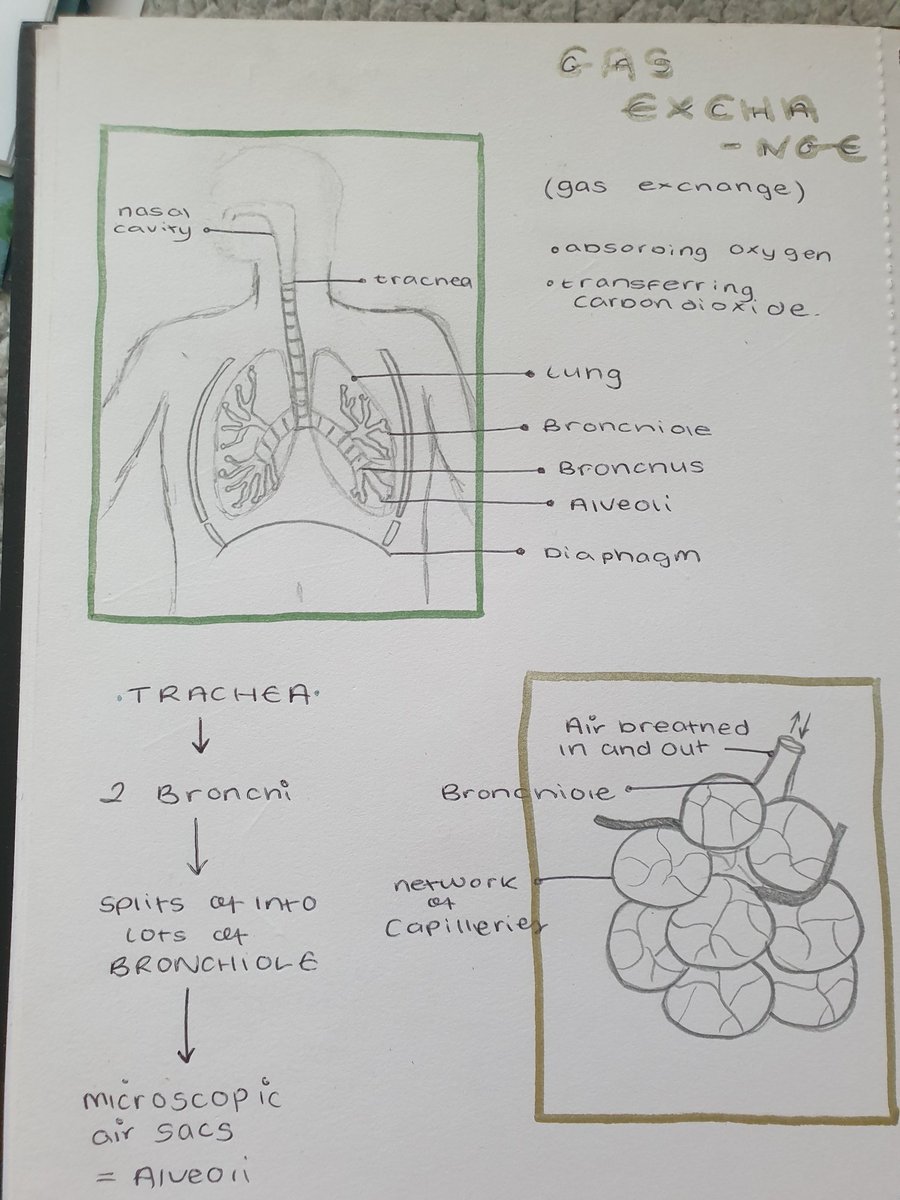 GAS
EXCHA
-NGE
(gas exchange)
• absorbing oxygen
• transferring
carbondioxide.
nasal
cavity
trachea
Lung
Bronchiole
Bronchus
Alveoli
Diaphagm
·TRACHEA·
2 Bronchi
splits of into
lots of
BRONCHIOLE
microscopic
air sacs
= Alveoli
Air breathed
in and out
Bronchiole
network
of
Capilleries